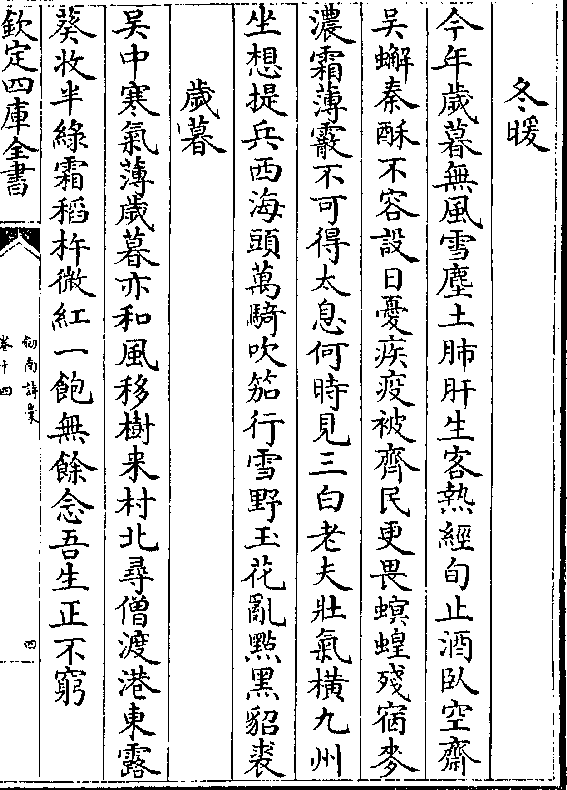 冬暖
今年歲暮無風雪塵土肺肝生客熱經旬止酒臥空齋
吳蠏秦酥不容設日憂疾疫被齊民更畏螟蝗殘宿麥
濃霜薄霰不可得太息何時見三白老夫壯氣橫九州
坐想提兵西海頭萬騎吹笳行雪野玉花亂㸃黑貂裘
歲暮
吳中寒氣薄歲暮亦和風移樹来村北尋僧渡港東露
葵收半綠霜稻杵微紅一飽無餘念吾生正不窮
欽定四庫全書
劍南詩稾
卷十四
四